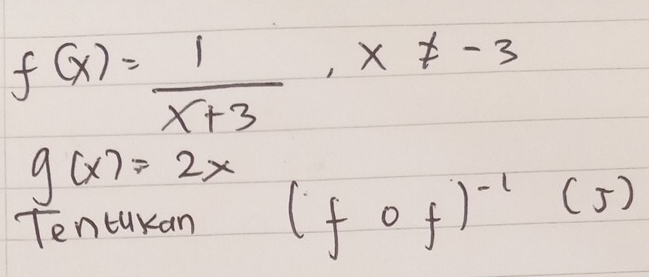 f(x) = 1/(x+3) , x ≠ -3
g(x) = 2x
Tentukan (f o f)⁻¹ (5)